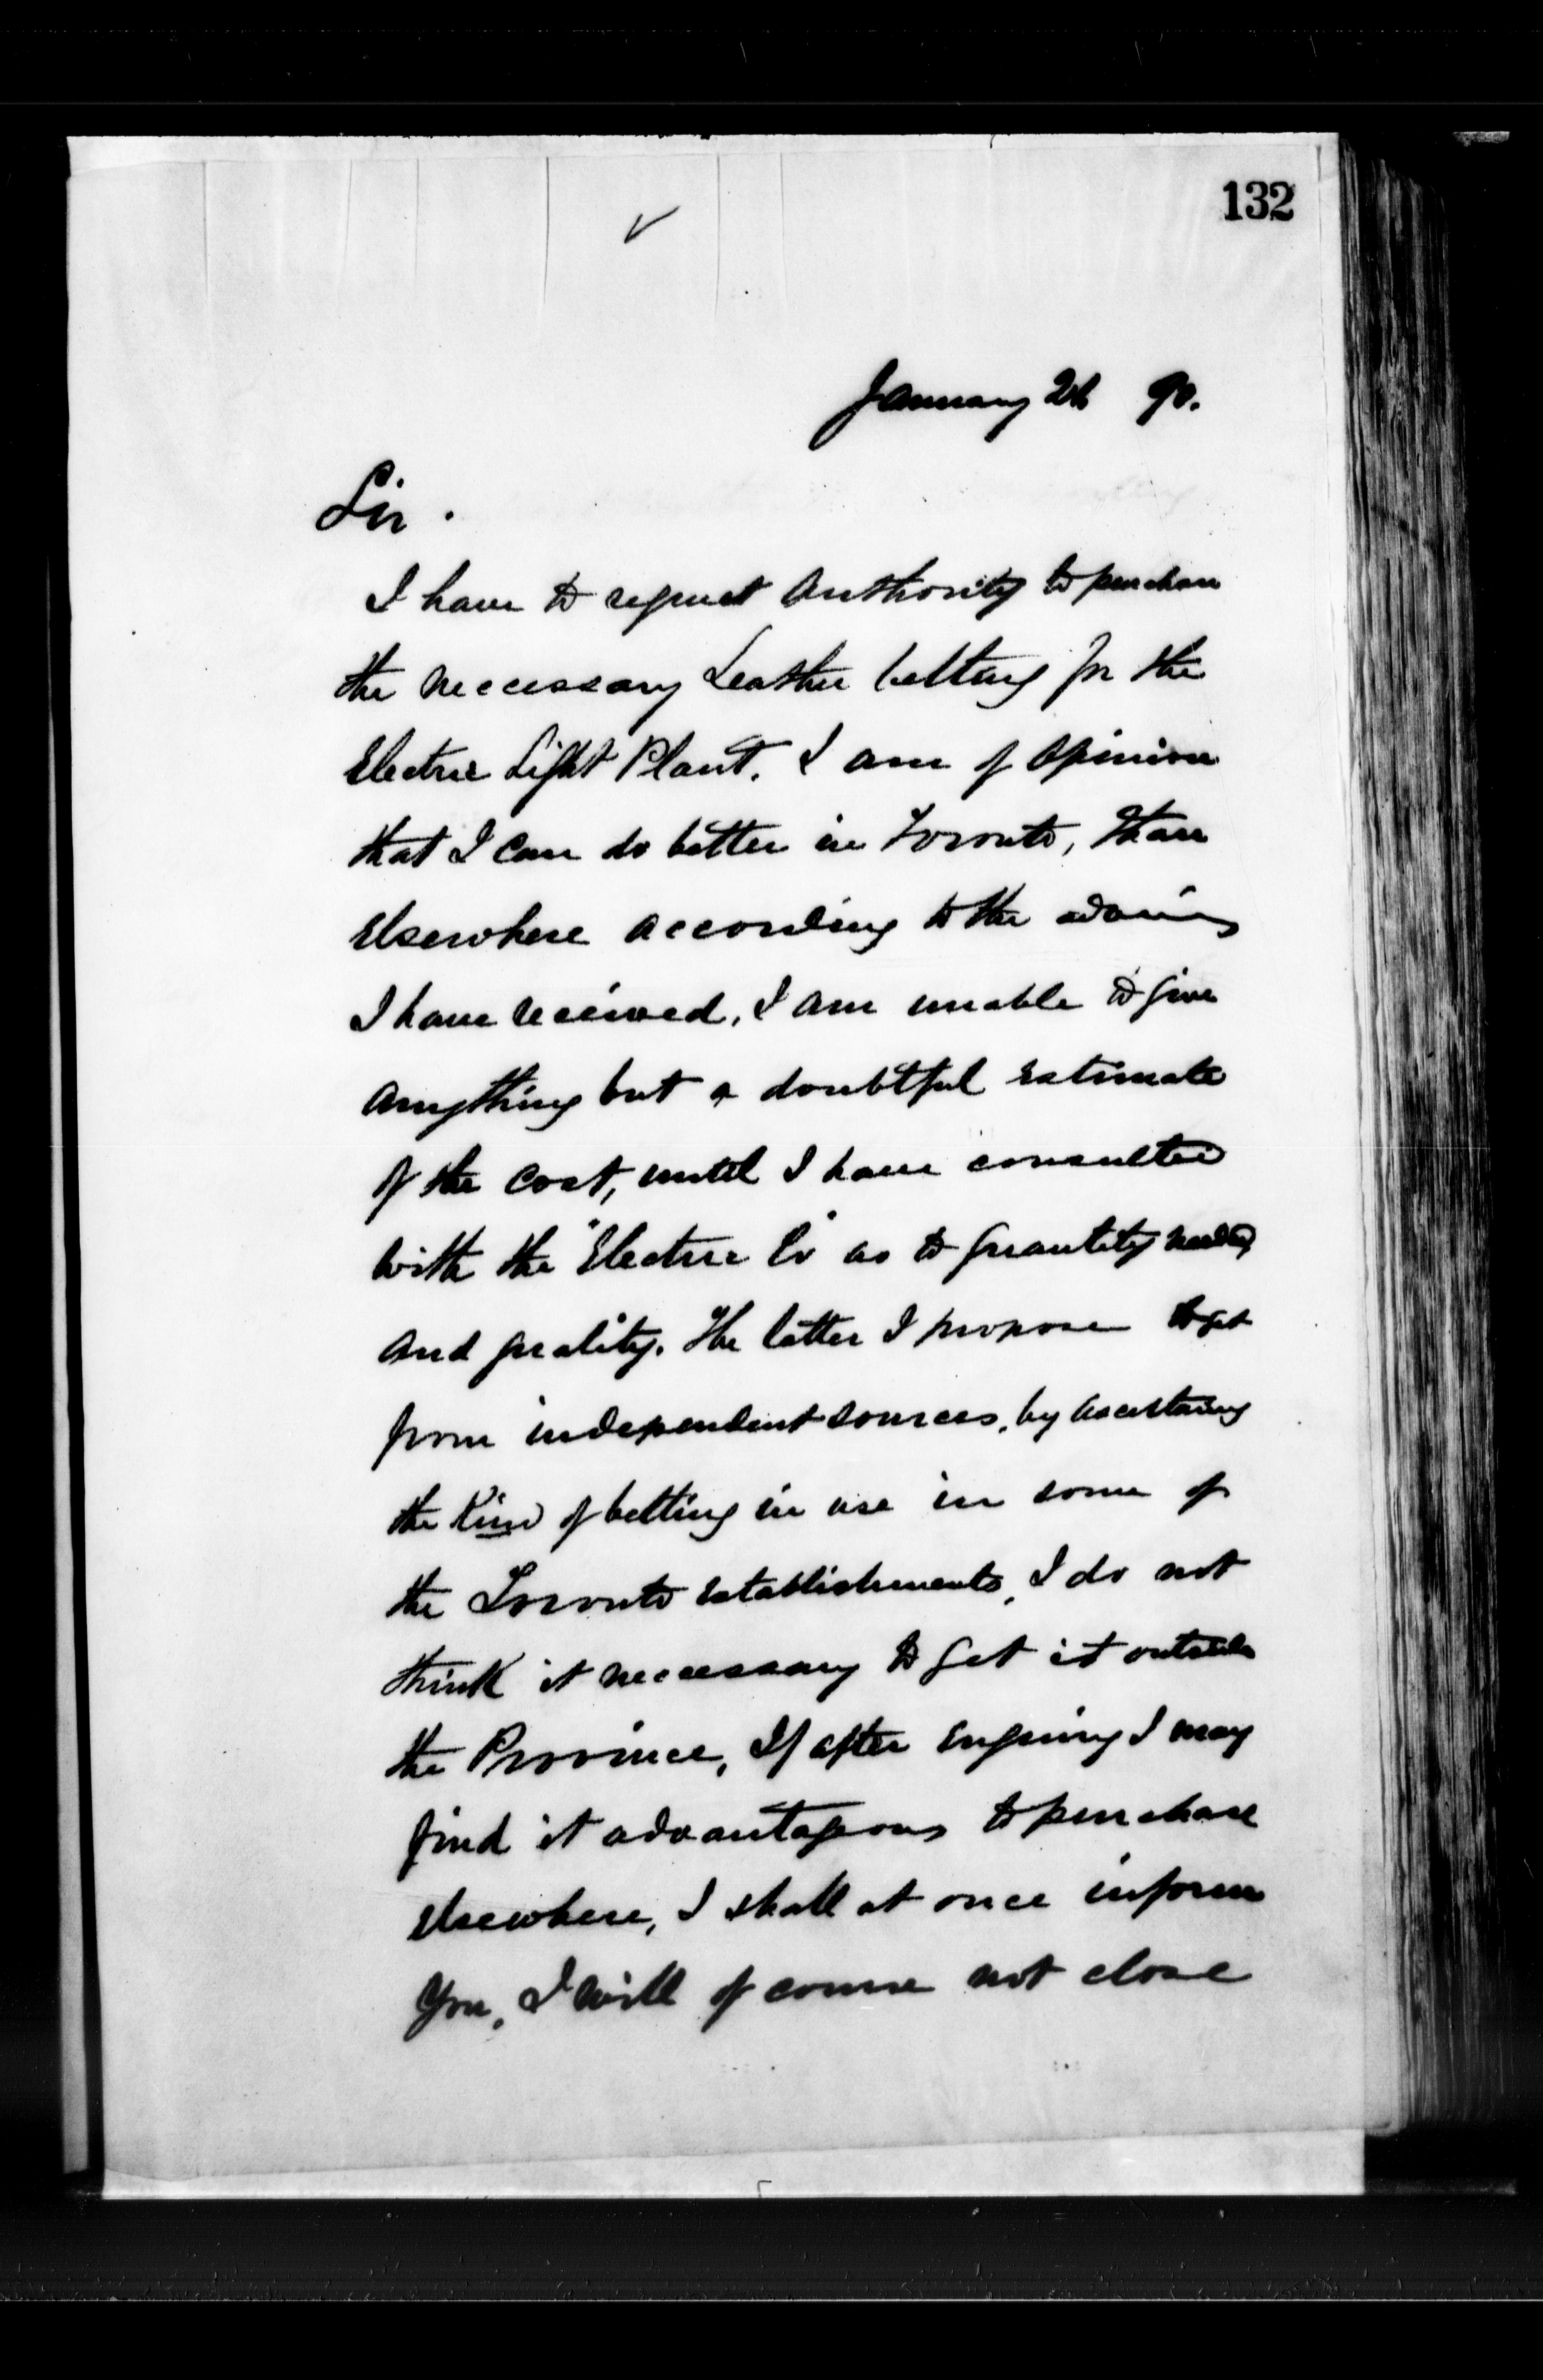 132
January 90.
Sir.
I have to request Authority to purchase
the neccessary Leather belting for the
Electric Light Plant. I am of Opinion
that I can do better in Toronto, than
Elsewhere according to the advices
I have received, I am unable to give
Anything but a doubtful Estimate
of the Cost, until I have consulted
with the "Electric Co" as to quantity needed
and quality. The latter I propose to get
from independent sources, by ascertaining
the Kind of belting in use in some of
the Toronto Establishments, I do not
think it neccessary to get it outside
the Province, If after Enquiry I may
find it advantageous to purchase
Elsewhere, I shall at once inform
you, I will of course not close